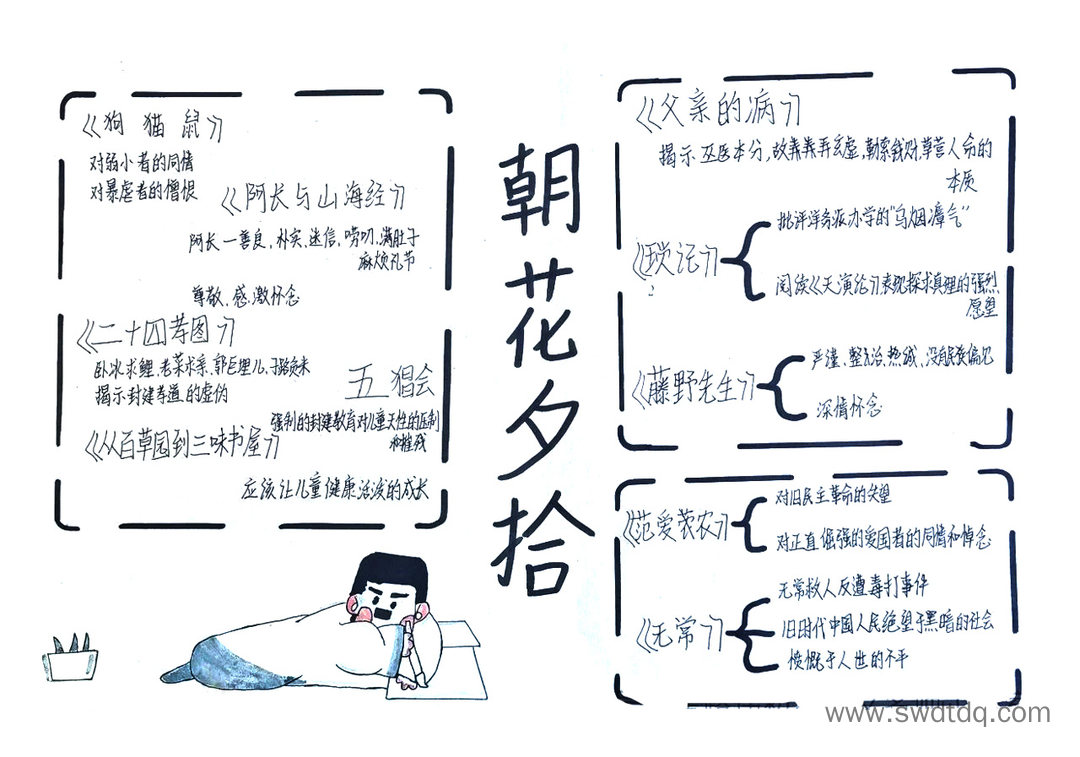 《狗 猫 鼠》
对弱小者的同情
对暴虐者的憎恨
《阿长与山海经》
阿长—善良、朴实、迷信、唠叨、满肚子
麻烦礼节
尊敬、感激怀念
《二十四孝图》
卧冰求鲤、老莱求亲、郭巨埋儿、子路负米
揭示封建孝道的虚伪
五猖会
强制的封建教育对儿童天性的压制
和摧残
《从百草园到三味书屋》
应该让儿童健康活泼的成长
朝花夕拾
《父亲的病》
揭示巫医本分,故弄弄弄玄虚,勒索钱财,草菅人命的
本质
《琐记》
批评洋务派办学的“乌烟瘴气”
阅读《天演论》表现探求真理的强烈
愿望
《藤野先生》
严谨、热诚、没有民族偏见
深情怀念
《范爱农》
对旧民主革命的失望
对正直倔强的爱国者的同情和悼念
《无常》
无常救人反遭毒打事件
旧时代中国人民绝望于黑暗的社会
愤慨于人世的不平
www.swdtdq.com